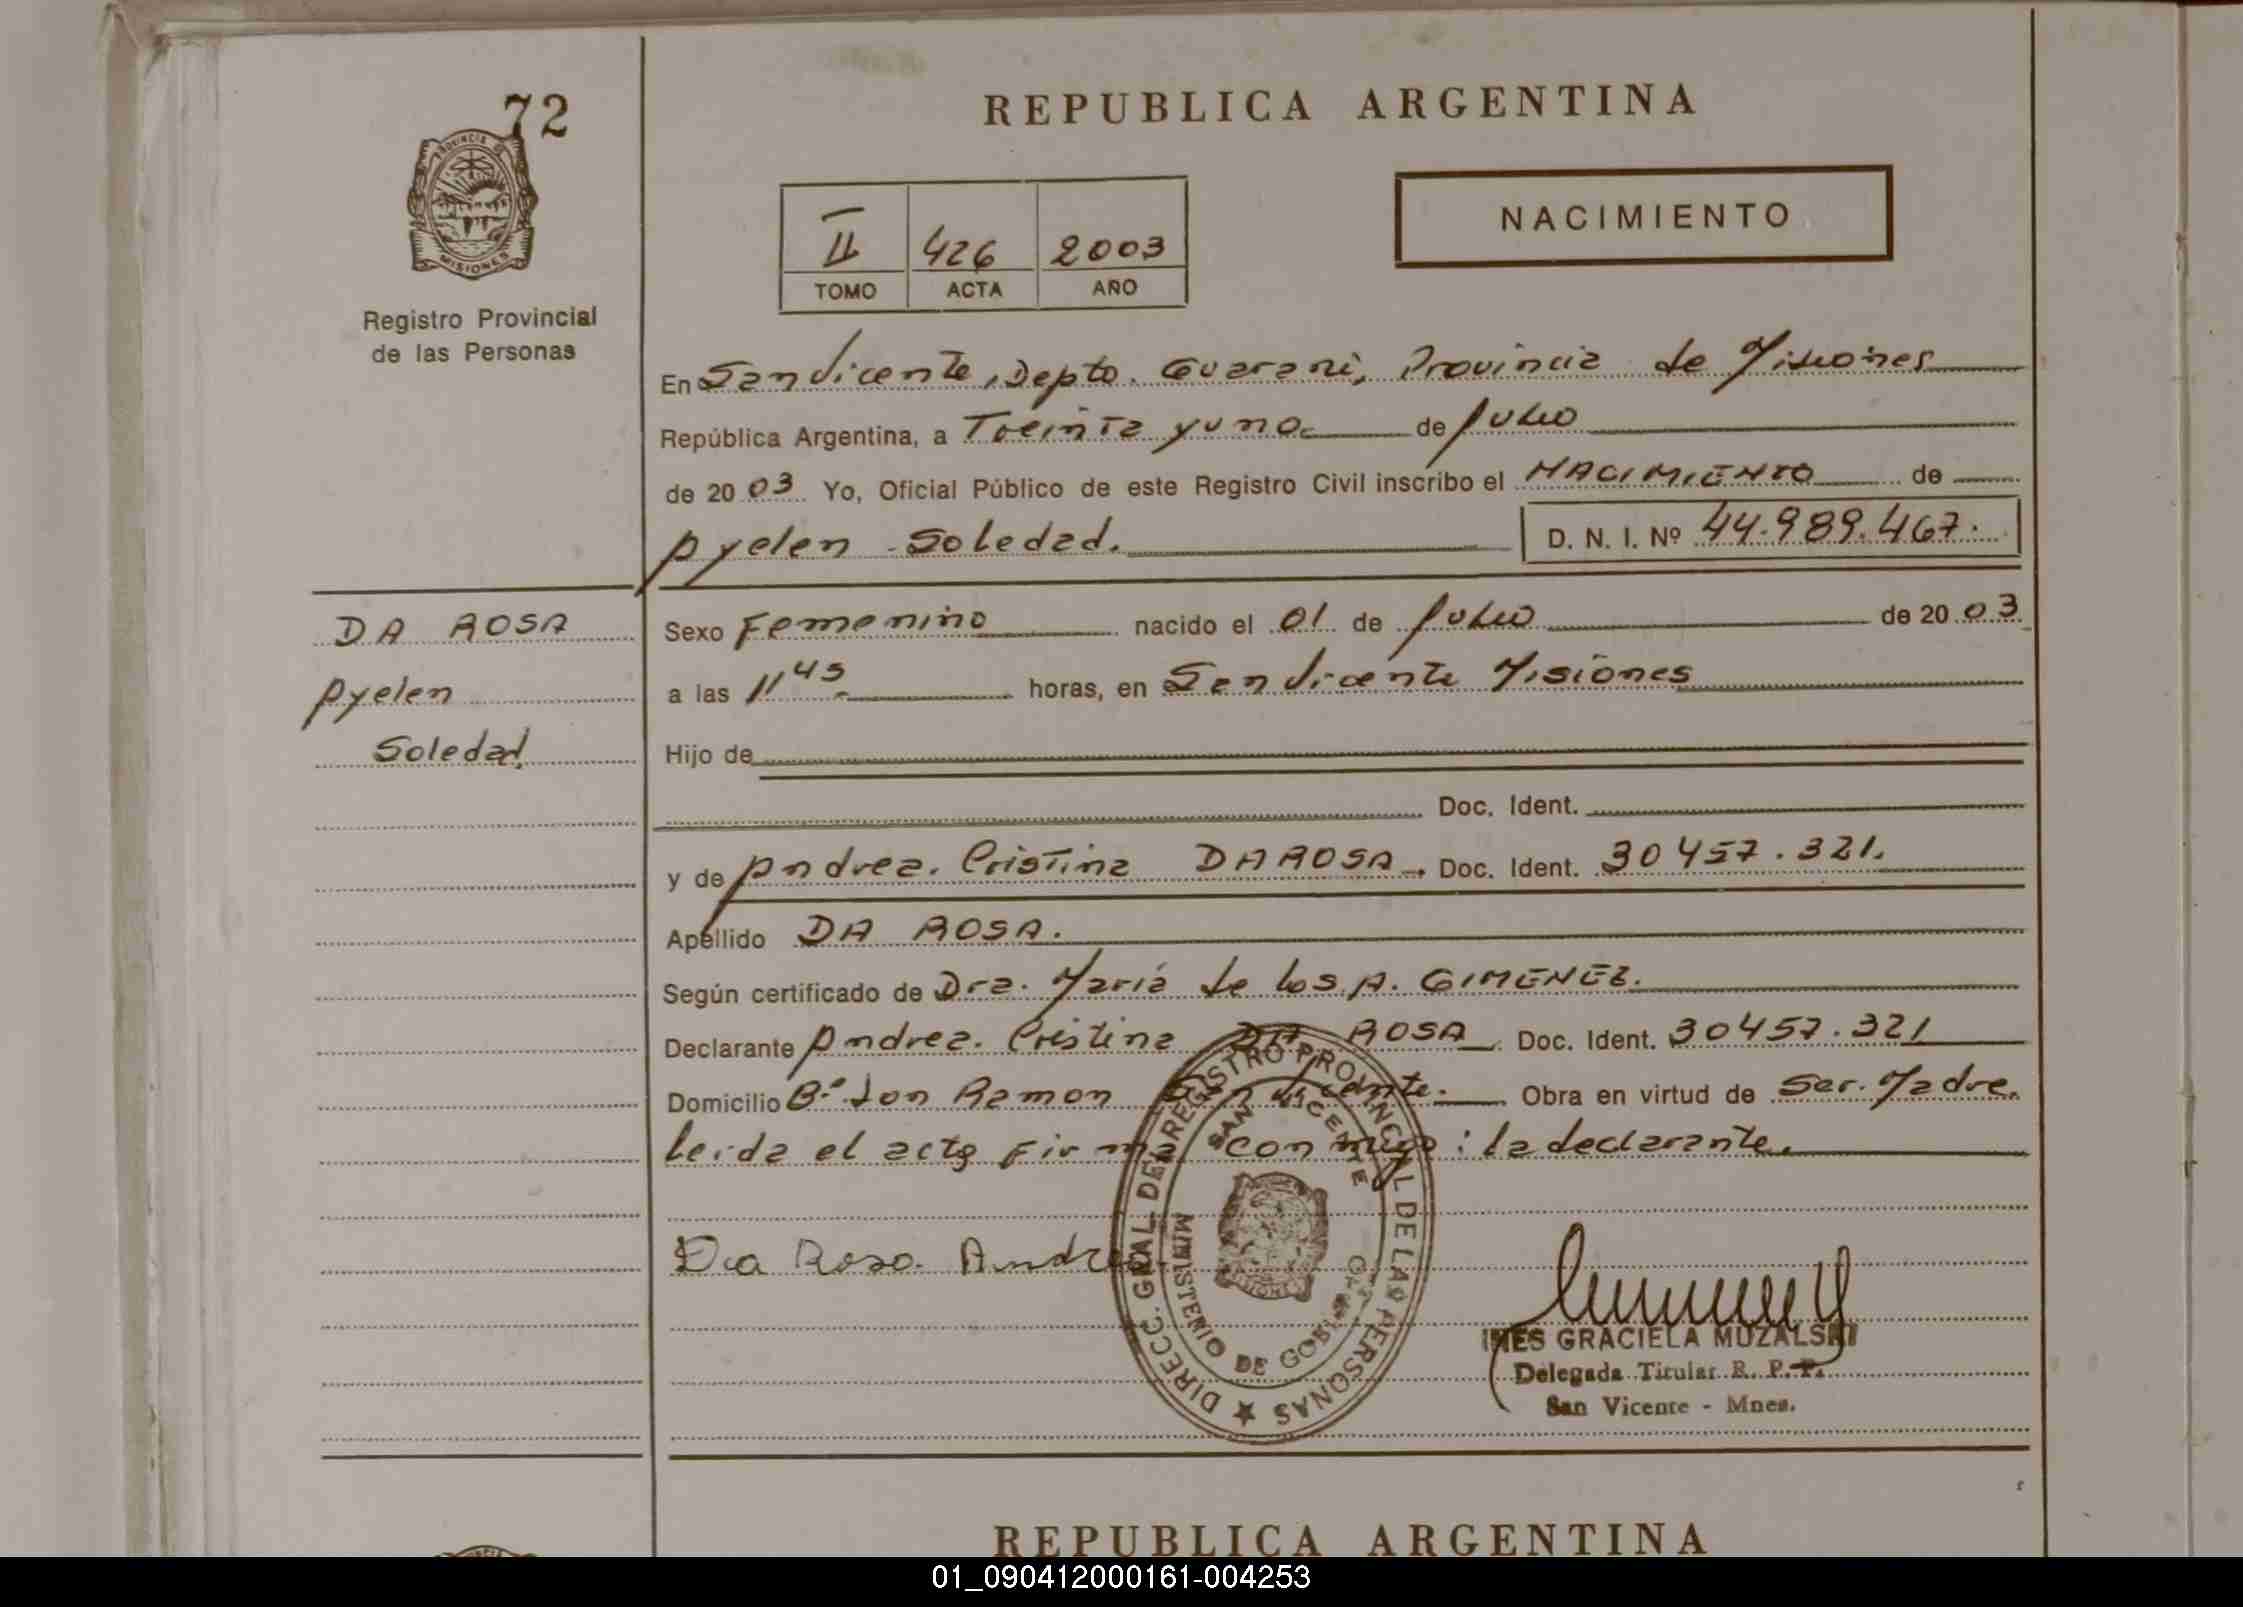 72
PROVINCIA DE
MISIONES
Registro Provincial
de las Personas
REPUBLICA ARGENTINA
II 426 2003
TOMO ACTA AÑO
NACIMIENTO
En San Vicente, Depto. Guarani, Provincia de Misiones
República Argentina, a Treinta y uno de Julio
de 20 03 Yo, Oficial Público de este Registro Civil inscribo el NACIMIENTO de
Ayelen Soledad. D. N. I. Nº 44.989.467.
DA ROSA
Ayelen
Soledad.
Sexo Femenino nacido el 01 de Julio de 20 03
a las 11 45 horas, en San Vicente Misiones
Hijo de
Doc. Ident.
y de Andrea. Cristina DA ROSA. Doc. Ident. 30457.321.
Apellido DA ROSA.
Según certificado de Dra. María de los A. GIMENEZ.
Declarante Andrea. Cristina DA ROSA Doc. Ident. 30457.321
Domicilio Bº. Don Ramon San Vicente. Obra en virtud de Ser. Madre.
leida el acta firma conmigo: la declarante.
Da Rosa Andrea
DIRECC. GRAL DEL REGISTRO PROVINCIAL DE LAS PERSONAS
SAN VICENTE
MINISTERIO DE GOBIERNO
MISIONES
INES GRACIELA MUZALSKI
Delegada Titular R. P. P.
San Vicente - Mnes.
REPUBLICA ARGENTINA
01_090412000161-004253